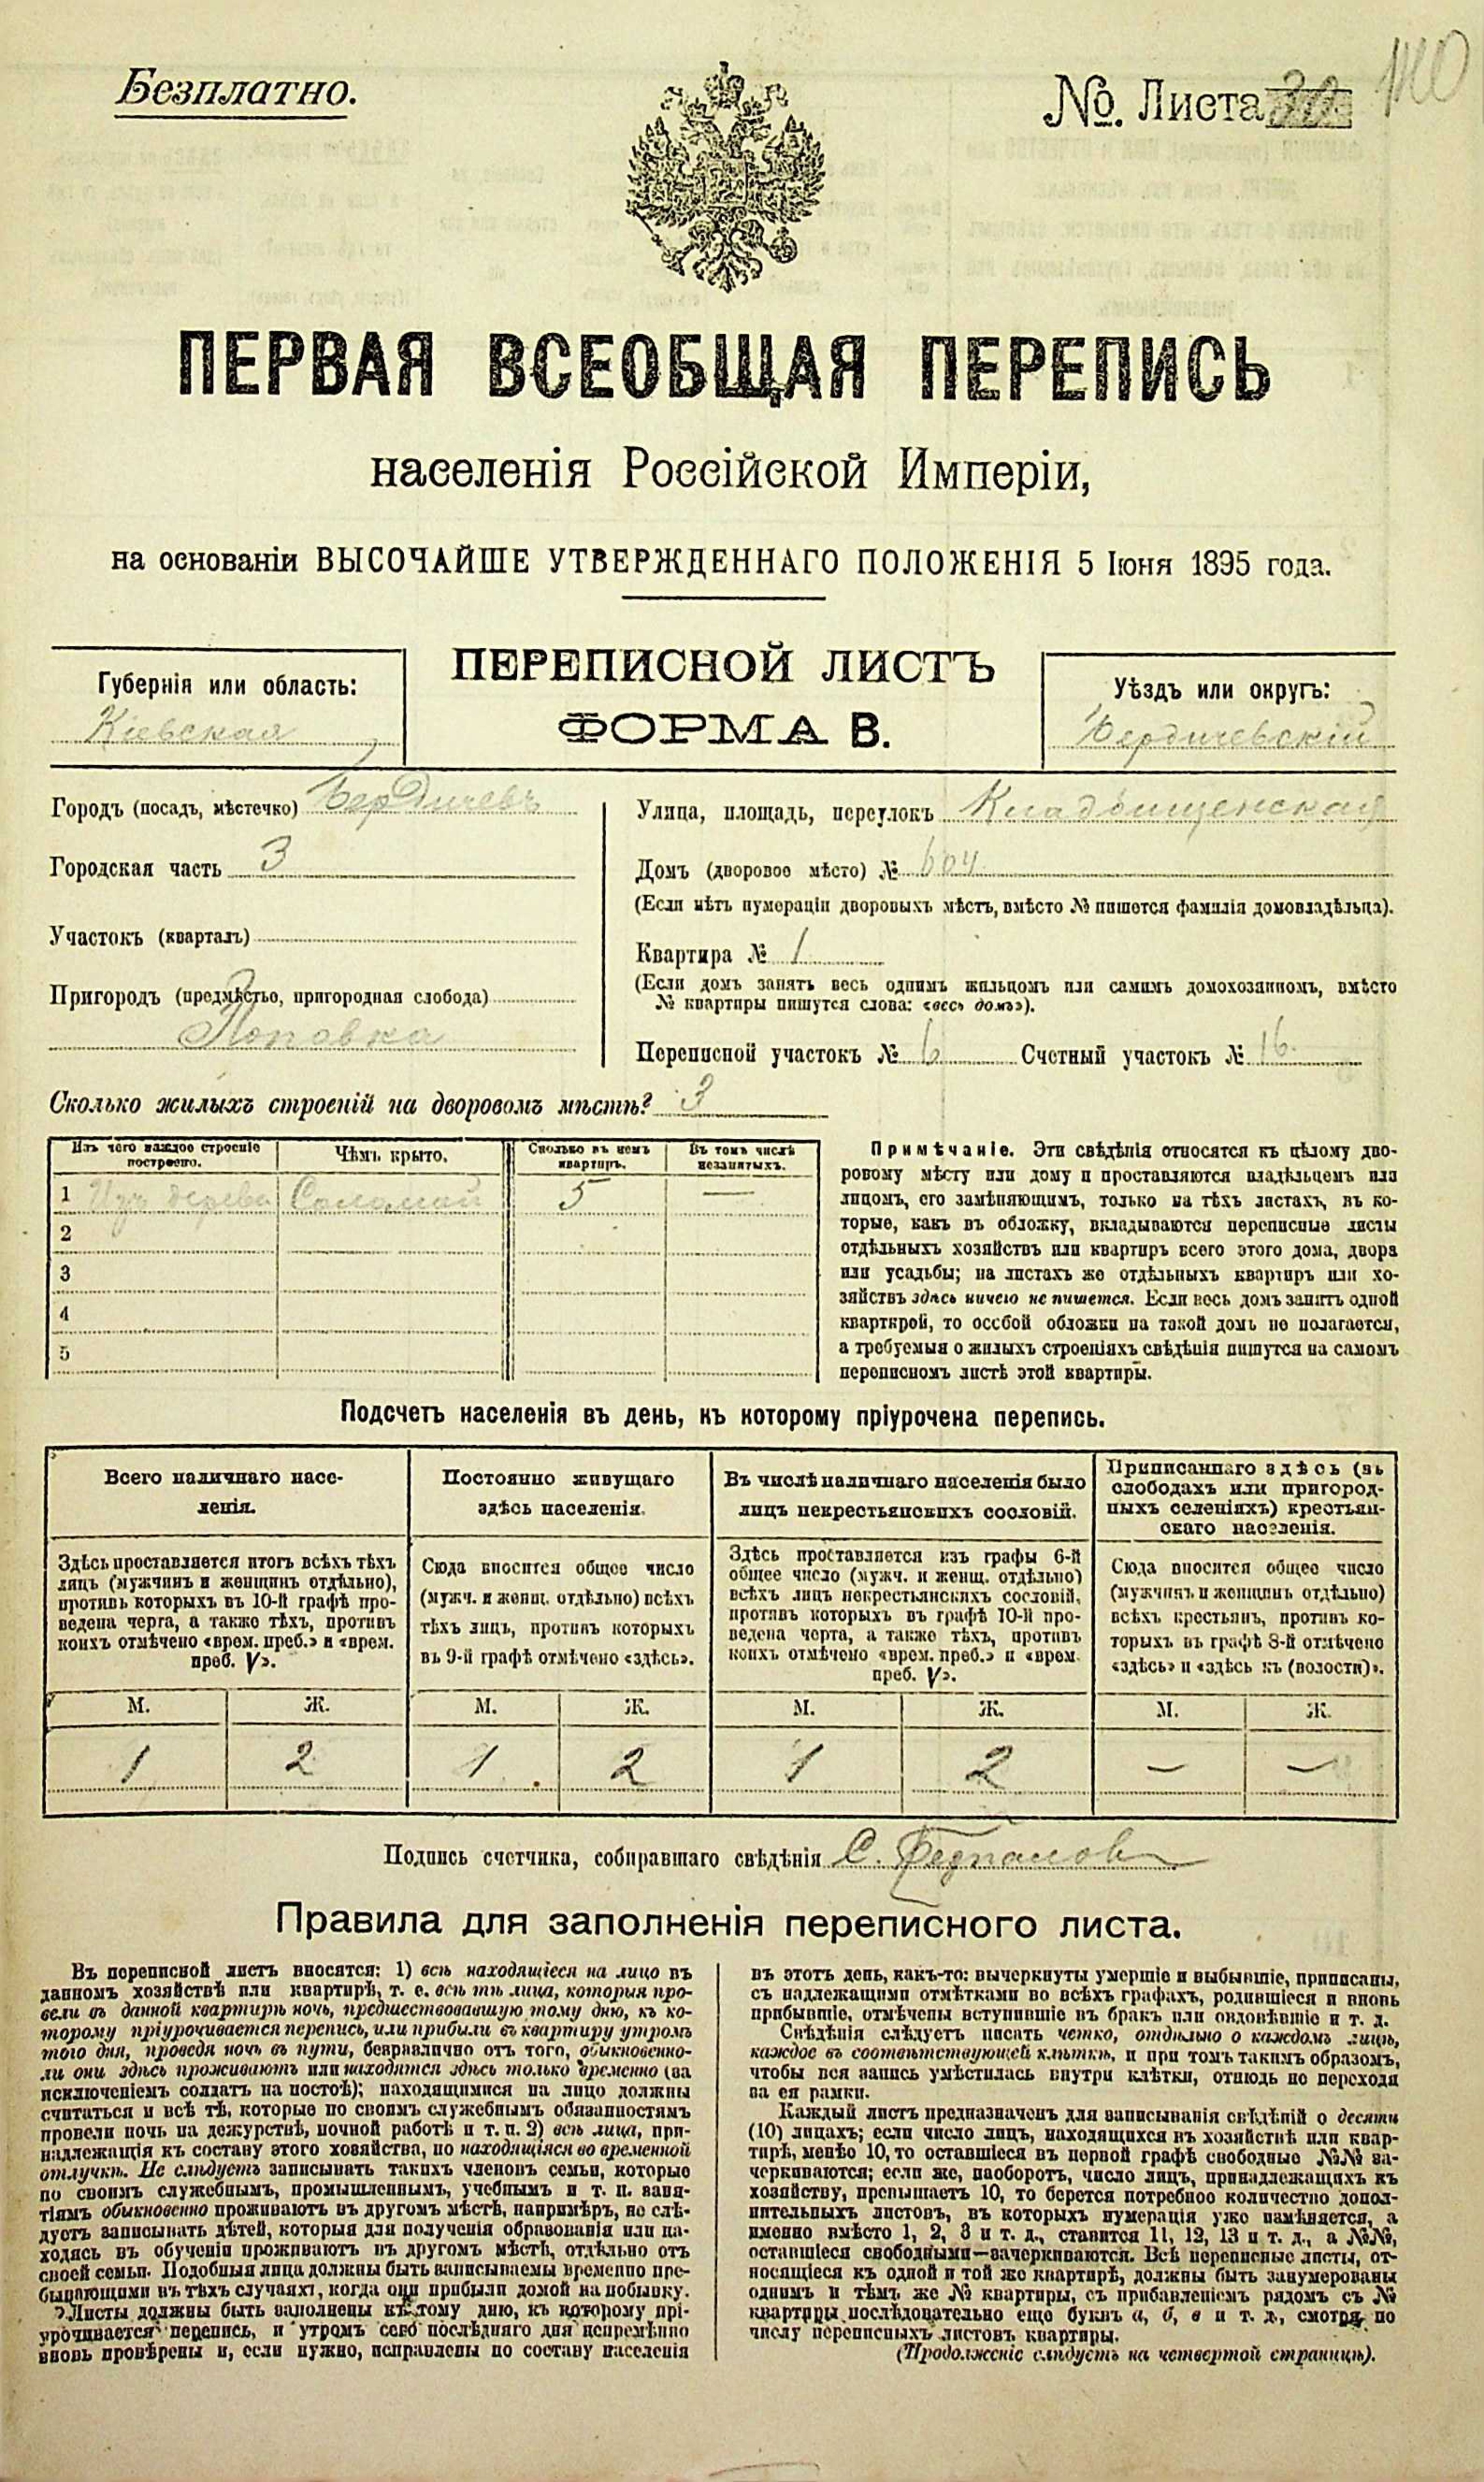 Безплатно.
№. Листа
110
ПЕРВАЯ ВСЕОБЩАЯ ПЕРЕПИСЬ
населенія Россійской Имперіи,
на основаніи ВЫСОЧАЙШЕ УТВЕРЖДЕННАГО ПОЛОЖЕНІЯ 5 Іюня 1895 года.
Губернія или область:
Кіевская
ПЕРЕПИСНОЙ ЛИСТЪ
ФОРМА В.
Уѣздъ или округъ:
Бердичевскій
Городъ (посадъ, мѣстечко) Бердичевъ
Городская часть 3
Участокъ (кварталъ)
Пригородъ (предмѣстье, пригородная слобода)
Поповка
Улица, площадь, переулокъ Кладбищенская
Домъ (дворовое мѣсто) №
(Если нѣтъ нумераціи дворовыхъ мѣстъ, вмѣсто № пишется фамилія домовладѣльца).
Квартира № 1
(Если домъ занятъ весь однимъ жильцомъ или самимъ домохозяиномъ, вмѣсто
№ квартиры пишутся слова: «весь домъ»).
Переписной участокъ № 6 Счетный участокъ № 16.
Сколько жилыхъ строеній на дворовомъ мѣстѣ? 3
Изъ чего каждое строеніе
построено.
Чѣмъ крыто.
Сколько въ немъ
квартиръ.
Въ томъ числѣ
незанятыхъ.
1 Изъ дерева Соломой 5 —
2
3
4
5
Примѣчаніе. Эти свѣдѣнія относятся къ цѣлому дво-
ровому мѣсту или дому и проставляются владѣльцемъ или
лицомъ, его замѣняющимъ, только на тѣхъ листахъ, въ ко-
торые, какъ въ обложку, вкладываются переписные листы
отдѣльныхъ хозяйствъ или квартиръ всего этого дома, двора
или усадьбы; на листахъ же отдѣльныхъ квартиръ или хо-
зяйствъ здѣсь ничего не пишется. Если весь домъ занятъ одной
квартирой, то особой обложки на такой домъ не полагается,
а требуемыя о жилыхъ строеніяхъ свѣдѣнія пишутся на самомъ
переписномъ листѣ этой квартиры.
Подсчетъ населенія въ день, къ которому пріурочена перепись.
Всего наличнаго насе-
ленія.
Здѣсь проставляется итогъ всѣхъ тѣхъ
лицъ (мужчинъ и женщинъ отдѣльно),
противъ которыхъ въ 10-й графѣ про-
ведена черта, а также тѣхъ, противъ
коихъ отмѣчено «врем. преб.» и «врем.
преб. V».
Постоянно живущаго
здѣсь населенія.
Сюда вносится общее число
(мужч. и женщ. отдѣльно) всѣхъ
тѣхъ лицъ, противъ которыхъ
въ 9-й графѣ отмѣчено «здѣсь».
Въ числѣ наличнаго населенія было
лицъ некрестьянскихъ сословій.
Здѣсь проставляется изъ графы 6-й
общее число (мужч. и женщ. отдѣльно)
всѣхъ лицъ некрестьянскихъ сословій,
противъ которыхъ въ графѣ 10-й про-
ведена черта, а также тѣхъ, противъ
коихъ отмѣчено «врем. преб.» и «врем.
преб. V».
Приписаннаго здѣсь (въ
слободахъ или пригород-
ныхъ селеніяхъ) крестьян-
скаго населенія.
Сюда вносится общее число
(мужчинъ и женщинъ отдѣльно)
всѣхъ крестьянъ, противъ ко-
торыхъ въ графѣ 8-й отмѣчено
«здѣсь» и «здѣсь къ (волости)».
М. Ж. М. Ж. М. Ж. М. Ж.
1 2 1 2 1 2 — —
Подпись счетчика, собиравшаго свѣдѣнія С.
Правила для заполненія переписного листа.
Въ переписной листъ вносятся: 1) всѣ находящіеся на лицо въ
данномъ хозяйствѣ или квартирѣ, т. е. всѣ тѣ лица, которыя про-
вели въ данной квартирѣ ночь, предшествовавшую тому дню, къ ко-
торому пріурочивается перепись, или прибыли въ квартиру утромъ
того дня, проведя ночь въ пути, безразлично отъ того, обыкновенно-
ли они здѣсь проживаютъ или находятся здѣсь только временно (за
исключеніемъ солдатъ на постоѣ); находящимися на лицо должны
считаться и всѣ тѣ, которые по своимъ служебнымъ обязанностямъ
провели ночь на дежурствѣ, ночной работѣ и т. п. 2) всѣ лица, при-
надлежащія къ составу этого хозяйства, но находящіяся во временной
отлучкѣ. Не слѣдуетъ записывать такихъ членовъ семьи, которые
по своимъ служебнымъ, промышленнымъ, учебнымъ и т. п. заня-
тіямъ обыкновенно проживаютъ въ другомъ мѣстѣ, напримѣръ, не слѣ-
дуетъ записывать дѣтей, которыя для полученія образованія или на-
ходясь въ обученіи проживаютъ въ другомъ мѣстѣ, отдѣльно отъ
своей семьи. Подобныя лица должны быть записываемы временно пре-
бывающими въ тѣхъ случаяхъ, когда они прибыли домой на побывку.
Листы должны быть заполнены къ тому дню, къ которому прі-
урочивается перепись, и утромъ сего послѣдняго дня непремѣнно
вновь провѣрены и, если нужно, исправлены по составу населенія
въ этотъ день, какъ-то: вычеркнуты умершіе и выбывшіе, приписаны,
съ надлежащими отмѣтками во всѣхъ графахъ, родившіеся и вновь
прибывшіе, отмѣчены вступившіе въ бракъ или овдовѣвшіе и т. д.
Свѣдѣнія слѣдуетъ писать четко, отдѣльно о каждомъ лицѣ,
каждое въ соотвѣтствующей клѣткѣ, и при томъ такимъ образомъ,
чтобы вся запись умѣстилась внутри клѣтки, отнюдь не переходя
за ея рамки.
Каждый листъ предназначенъ для записыванія свѣдѣній о десяти
(10) лицахъ; если число лицъ, находящихся въ хозяйствѣ или квар-
тирѣ, менѣе 10, то оставшіеся въ первой графѣ свободные №№ за-
черкиваются; если же, наоборотъ, число лицъ, принадлежащихъ къ
хозяйству, превышаетъ 10, то берется потребное количество допол-
нительныхъ листовъ, въ которыхъ нумерація уже измѣняется, а
именно вмѣсто 1, 2, 3 и т. д., ставится 11, 12, 13 и т. д., а №№,
оставшіеся свободными—зачеркиваются. Всѣ переписные листы, от-
носящіеся къ одной и той же квартирѣ, должны быть занумерованы
однимъ и тѣмъ же № квартиры, съ прибавленіемъ рядомъ съ №
квартиры послѣдовательно еще буквъ а, б, в и т. д., смотря по
числу переписныхъ листовъ квартиры.
(Продолженіе слѣдуетъ на четвертой страницѣ).